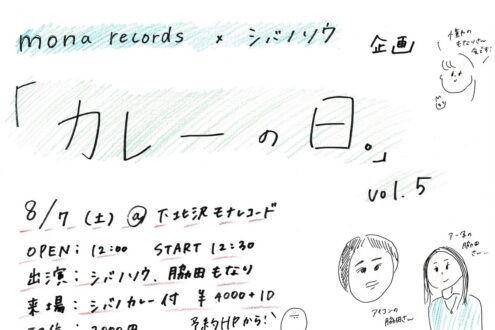 mona records × シバノソウ 企画
「カレーの日。」
vol.5
8/7 (土) @ 下北沢モナレコード
OPEN: 12:00 START 12:30
出演: シバノソウ、脇田もなり
来場: シバノカレー付 ¥4000+1D
2000円
予約HPから!
アー写の
脇田さん
アイコンの
脇田さん